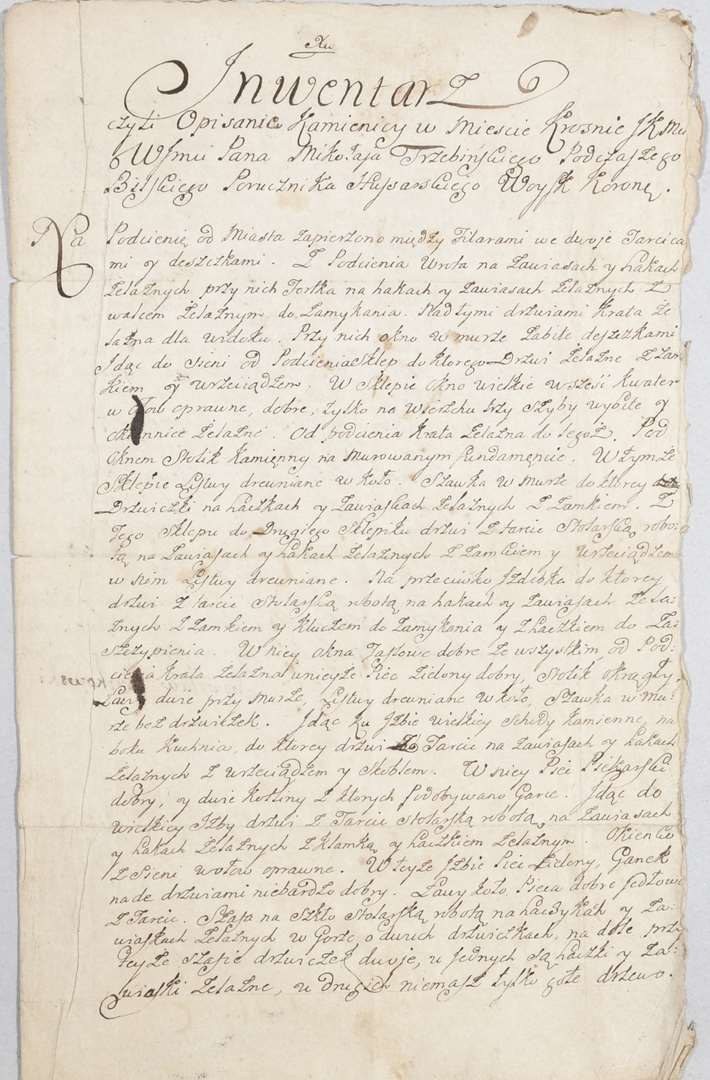 Inwentarz
czyli Opisanie Kamienicy w Mieście Krosnie JKMci
WJmci Pana Mikołaja Trzebinskiego Podczaszego
Porucznika Woysk Koronę.
Na Podcienię od Miasta zapierzono między Filarami we dwoje Tarcica
mi y deszczkami. Z Podcienia Wrota na Zawiasach y hakach
Zelaznych przy nich Fortka na hakach y Zawiasach Zelaznych Z
walcem Zelaznym do Zamykania. Nad tymi drzwiami Krata Ze
lazna dla widoku. Przy nich okno w murze Zabite deszczkami
Jdąc do Sieni od Podcienia Sklep do ktorego Drzwi Zelazne Z Zam
kiem y wrzeciądzem. W Sklepie Okno wielkie w sześć kwater
w ołow oprawne, dobre, tylko na wierzchu trzy Szyby wybite y
okiennice Zelazne. Od podcienia Krata Zelazna do tegoż. Pod
Oknem Stolik Kamięnny na murowanym fundamęncie. W tymże
Sklepie Listwy drewniane w koło. Szawka w murze do ktorey
Drzwiczki na haczkach y Zawiaskach Zelaznych Z Zamkiem. Z
Tego Sklepu do Drugiego Sklepiku drzwi Z tarcic Stolarską robo
tą na Zawiasach y hakach Zelaznych Z Zamkiem y wrzeciądzem
w nim Listwy drewniane. Na przeciwko Jzdebka do ktorey
drzwi Z tarcic Stolarską robotą na hakach y Zawiasach Zela
znych Z Zamkiem y Kluczem do Zamykania y Z haczkiem do Za
szczypienia. W niey okna Taflowe dobre ze wszystkim od Pod
cienia Krata Zelazna w niey że Piec Zielony dobry, Stolik okrągły
Ławy duże przy murze, Listwy drewniane w koło, Szawka w Mu
rze bez drzwiczek. Jdąc ku Jzbie wielkiey Schody Kamienne, na
boku Kuchnia, do ktorey drzwi Z Tarcic na Zawiasach y hakach
Zelaznych Z wrzeciądzem y Skoblem. W niey Piec Piekarski
dobry, y duże Kotliny Z ktorych podobywano Garce. Jdąc do
wielkiey Jzby drzwi Z Tarcic Stolarską robotą na Zawiasach
y hakach Zelaznych Z Klamką y haczkiem Zelaznym. Okienko
Z Sieni w ołow oprawne. W teyże Jzbie Piec Zielony, Ganek
nade drzwiami niebardzo dobry. Ławy koło Pieca dobre Jedłowe
Z Tarcic. Szafa na Szkło Stolarską robotą na haczykach y Za
wiaskach Zelaznych w Gorze o dwuch drzwiczkach, na dole przy
teyże Szafie drzwiczek dwoje, u jednych są haczki y Za
wiaski Zelazne, u drugich niemasz tylko gołe drzewo.